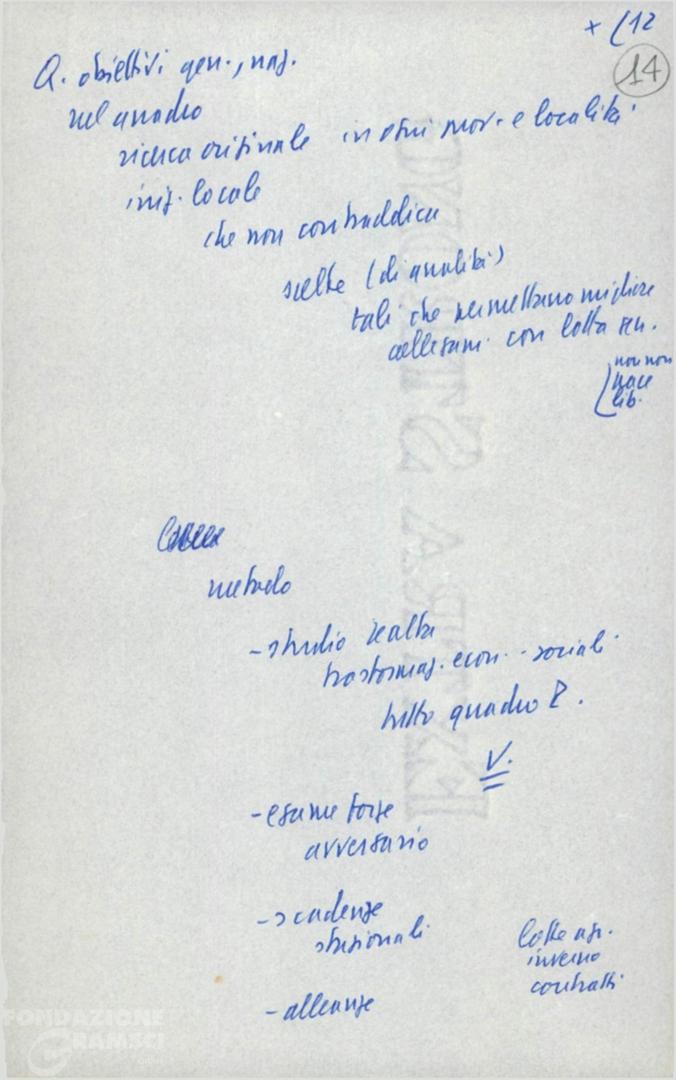 + (12
14
Q. obiettivi gen., naz.
nel quadro
ricerca originale in ogni prov. e località
iniz. locale
che non contraddica
scelte (di qualità)
tali che permettano migliore
collegam. con lotta gen.
pace
lib.
metodo
- studio realtà
trasformaz. econ. - sociali
tutto quadro
V.
- esame forze
avversario
- scadenze
stagionali
lotte agr.
inverno
contratti
- alleanze
EXTRA STRONG
FONDAZIONE
GRAMSCI